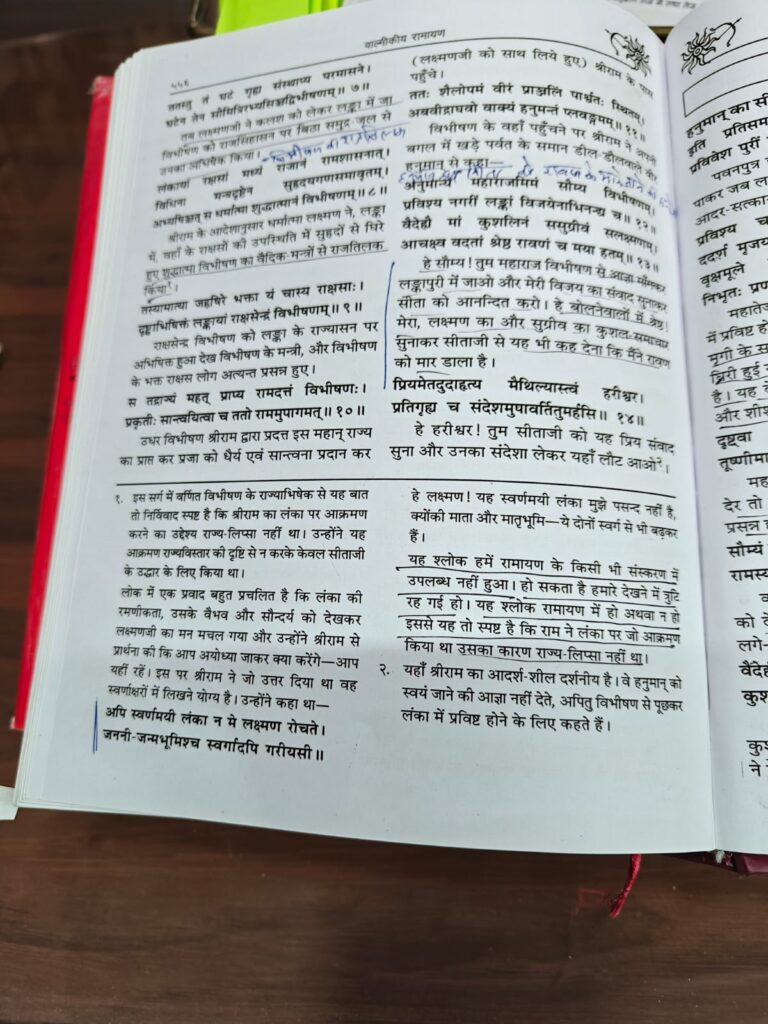 वाल्मीकीय रामायण
५५६
ततस्तु तं घटं गृह्य संस्थाप्य परमासने।
घटेन तेन सौमित्रिरभ्यसिञ्चद्विभीषणम्॥७॥
तब लक्ष्मणजी ने कलश को लेकर लङ्का में जा
विभीषण को राजसिंहासन पर बिठा समुद्र-जल से
उनका अभिषेक किया।
लंकायां रक्षसां मध्ये राजानं रामशासनात्।
विधिना मन्त्रदृष्टेन सुहृदगणसमावृतम्।
अभ्यषिञ्चत् स धर्मात्मा शुद्धात्मानं विभीषणम्॥८॥
श्रीराम के आदेशानुसार धर्मात्मा लक्ष्मण ने, लङ्का
में, वहाँ के राक्षसों की उपस्थिति में सुहृदों से घिरे
हुए शुद्धात्मा विभीषण का वैदिक-मन्त्रों से राजतिलक
किया१।
तस्यामात्या जहृषिरे भक्ता ये चास्य राक्षसाः।
दृष्ट्वाभिषिक्तं लङ्कायां राक्षसेन्द्रं विभीषणम्॥९॥
राक्षसेन्द्र विभीषण को लङ्का के राज्यासन पर
अभिषिक्त हुआ देख विभीषण के मन्त्री, और विभीषण
के भक्त राक्षस लोग अत्यन्त प्रसन्न हुए।
स तद्राज्यं महत् प्राप्य रामदत्तं विभीषणः।
प्रकृतीः सान्त्वयित्वा च ततो राममुपागमत्॥१०॥
उधर विभीषण श्रीराम द्वारा प्रदत्त इस महान् राज्य
का प्राप्त कर प्रजा को धैर्य एवं सान्त्वना प्रदान कर
(लक्ष्मणजी को साथ लिये हुए) श्रीराम के पास
पहुँचे।
ततः शैलोपमं वीरं प्राञ्जलिं पार्श्वतः स्थितम्।
अब्रवीद्राघवो वाक्यं हनुमन्तं प्लवङ्गमम्॥११॥
विभीषण के वहाँ पहुँचने पर श्रीराम ने अपनी
बगल में खड़े पर्वत के समान डील-डौलवाले वीर
हनुमान् से कहा—
अनुमान्य महाराजमिमं सौम्य विभीषणम्।
प्रविश्य नगरीं लङ्कां विजयेनाभिनन्द्य च॥१२॥
वैदेहीं मां कुशलिनं ससुग्रीवं सलक्ष्मणम्।
आचक्ष्व वदतां श्रेष्ठ रावणं च मया हतम्॥१३॥
हे सौम्य! तुम महाराज विभीषण से आज्ञा माँगकर
लङ्कापुरी में जाओ और मेरी विजय का संवाद सुनाकर
सीता को आनन्दित करो। हे बोलनेवालों में श्रेष्ठ!
मेरा, लक्ष्मण का और सुग्रीव का कुशल-समाचार
सुनाकर सीताजी से यह भी कह देना कि मैंने रावण
को मार डाला है।
प्रियमेतदुदाहृत्य मैथिल्यास्त्वं हरीश्वर।
प्रतिगृह्य च संदेशमुपावर्तितुमर्हसि॥१४॥
हे हरीश्वर! तुम सीताजी को यह प्रिय संवाद
सुना और उनका संदेशा लेकर यहाँ लौट आओ२।
१. इस सर्ग में वर्णित विभीषण के राज्याभिषेक से यह बात
तो निर्विवाद स्पष्ट है कि श्रीराम का लंका पर आक्रमण
करने का उद्देश्य राज्य-लिप्सा नहीं था। उन्होंने यह
आक्रमण राज्यविस्तार की दृष्टि से न करके केवल सीताजी
के उद्धार के लिए किया था।
लोक में एक प्रवाद बहुत प्रचलित है कि लंका की
रमणीकता, उसके वैभव और सौन्दर्य को देखकर
लक्ष्मणजी का मन मचल गया और उन्होंने श्रीराम से
प्रार्थना की कि आप अयोध्या जाकर क्या करेंगे—आप
यहीं रहें। इस पर श्रीराम ने जो उत्तर दिया था वह
स्वर्णाक्षरों में लिखने योग्य है। उन्होंने कहा था—
अपि स्वर्णमयी लंका न मे लक्ष्मण रोचते।
जननी-जन्मभूमिश्च स्वर्गादपि गरीयसी॥
हे लक्ष्मण! यह स्वर्णमयी लंका मुझे पसन्द नहीं है,
क्योंकी माता और मातृभूमि—ये दोनों स्वर्ग से भी बढ़कर
हैं।
यह श्लोक हमें रामायण के किसी भी संस्करण में
उपलब्ध नहीं हुआ। हो सकता है हमारे देखने में त्रुटि
रह गई हो। यह श्लोक रामायण में हो अथवा न हो
इससे यह तो स्पष्ट है कि राम ने लंका पर जो आक्रमण
किया था उसका कारण राज्य-लिप्सा नहीं था।
२. यहाँ श्रीराम का आदर्श-शील दर्शनीय है। वे हनुमान् को
स्वयं जाने की आज्ञा नहीं देते, अपितु विभीषण से पूछकर
लंका में प्रविष्ट होने के लिए कहते हैं।
हनुमान् का सी
इति प्रतिसम
प्रविवेश पुरीं
पवनपुत्र
पाकर जब ल
आदर-सत्का
प्रविश्य च
ददर्श मृजय
वृक्षमूले
निभृतः प्रण
महातेज
में प्रविष्ट हो
मृगी के स
घिरी हुई
है। यह
और शी
दृष्ट्वा
तूष्णीमा
मह
देर तो
प्रसन्न
सौम्यं
रामस्य
को दे
लगे-
वैदेही
कुश
कुश
ने